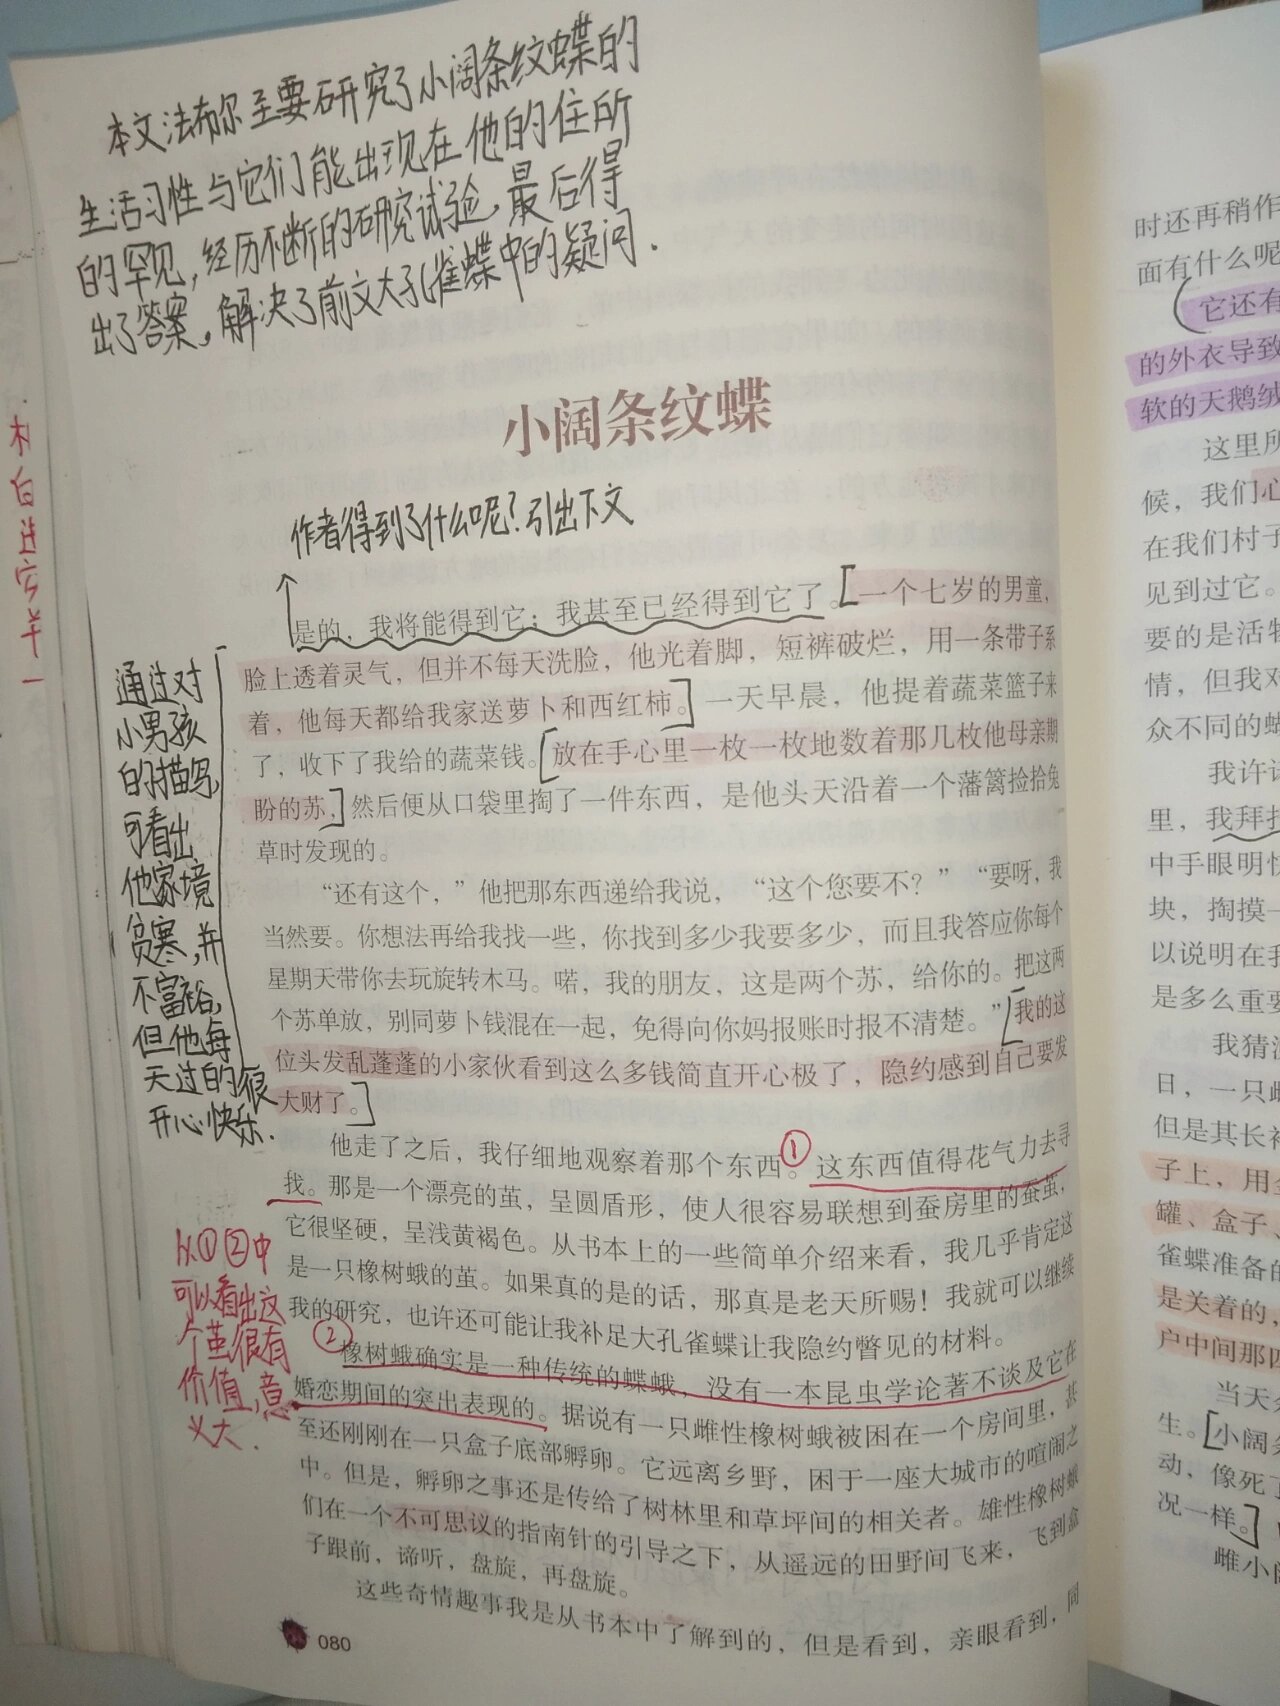 本文法布尔主要研究了小阔条纹蝶的
生活习性与它们能出现在他的住所
的罕见,经历不断的研究试验,最后得
出了答案,解决了前文大孔雀蝶中的疑问.
小阔条纹蝶
作者得到了什么呢?引出下文
是的，我将能得到它；我甚至已经得到它了。[一个七岁的男童，
脸上透着灵气，但并不每天洗脸，他光着脚，短裤破烂，用一条带子系
着，他每天都给我家送萝卜和西红柿。]一天早晨，他提着蔬菜篮子来
了，收下了我给的蔬菜钱。[放在手心里一枚一枚地数着那几枚他母亲期
盼的苏，]然后便从口袋里掏了一件东西，是他头天沿着一个藩篱捡拾兔
草时发现的。
“还有这个，”他把那东西递给我说，“这个您要不？”“要呀，我
当然要。你想法再给我找一些，你找到多少我要多少，而且我答应你每个
星期天带你去玩旋转木马。喏，我的朋友，这是两个苏，给你的。把这两
个苏单放，别同萝卜钱混在一起，免得向你妈报账时报不清楚。”[我的这
位头发乱蓬蓬的小家伙看到这么多钱简直开心极了，隐约感到自己要发
大财了。]
通过对
小男孩
的描写,
可看出
他家境
贫寒,并
不富裕,
但他每
天过的很
开心快乐.
他走了之后，我仔细地观察着那个东西。①这东西值得花气力去寻
找。那是一个漂亮的茧，呈圆盾形，使人很容易联想到蚕房里的蚕茧，
它很坚硬，呈浅黄褐色。从书本上的一些简单介绍来看，我几乎肯定这
是一只橡树蛾的茧。如果真的是的话，那真是老天所赐！我就可以继续
我的研究，也许还可能让我补足大孔雀蝶让我隐约瞥见的材料。
②橡树蛾确实是一种传统的蝶蛾，没有一本昆虫学论著不谈及它在
婚恋期间的突出表现的。据说有一只雌性橡树蛾被困在一个房间里，甚
至还刚刚在一只盒子底部孵卵。它远离乡野，困于一座大城市的喧闹之
中。但是，孵卵之事还是传给了树林里和草坪间的相关者。雄性橡树蛾
们在一个不可思议的指南针的引导之下，从遥远的田野间飞来，飞到盒
子跟前，谛听，盘旋，再盘旋。
这些奇情趣事我是从书本中了解到的，但是看到，亲眼看到，同
从①②中
可以看出这
个茧很有
价值,意
义大.
080
时还再稍作
面有什么呢
(它还有
的外衣导致
软的天鹅绒
这里所
候，我们心
在我们村子
见到过它。
要的是活物
情，但我对
众不同的蛾
我许诺
里，我拜托
中手眼明快
块，掏摸一
以说明在我
是多么重要
我猜
日，一只雌
但是其长袍
子上，用金
罐、盒子、
雀蝶准备的
是关着的，
户中间那四
当天
生。[小阔条
动，像死了
况一样。]
雌小阔